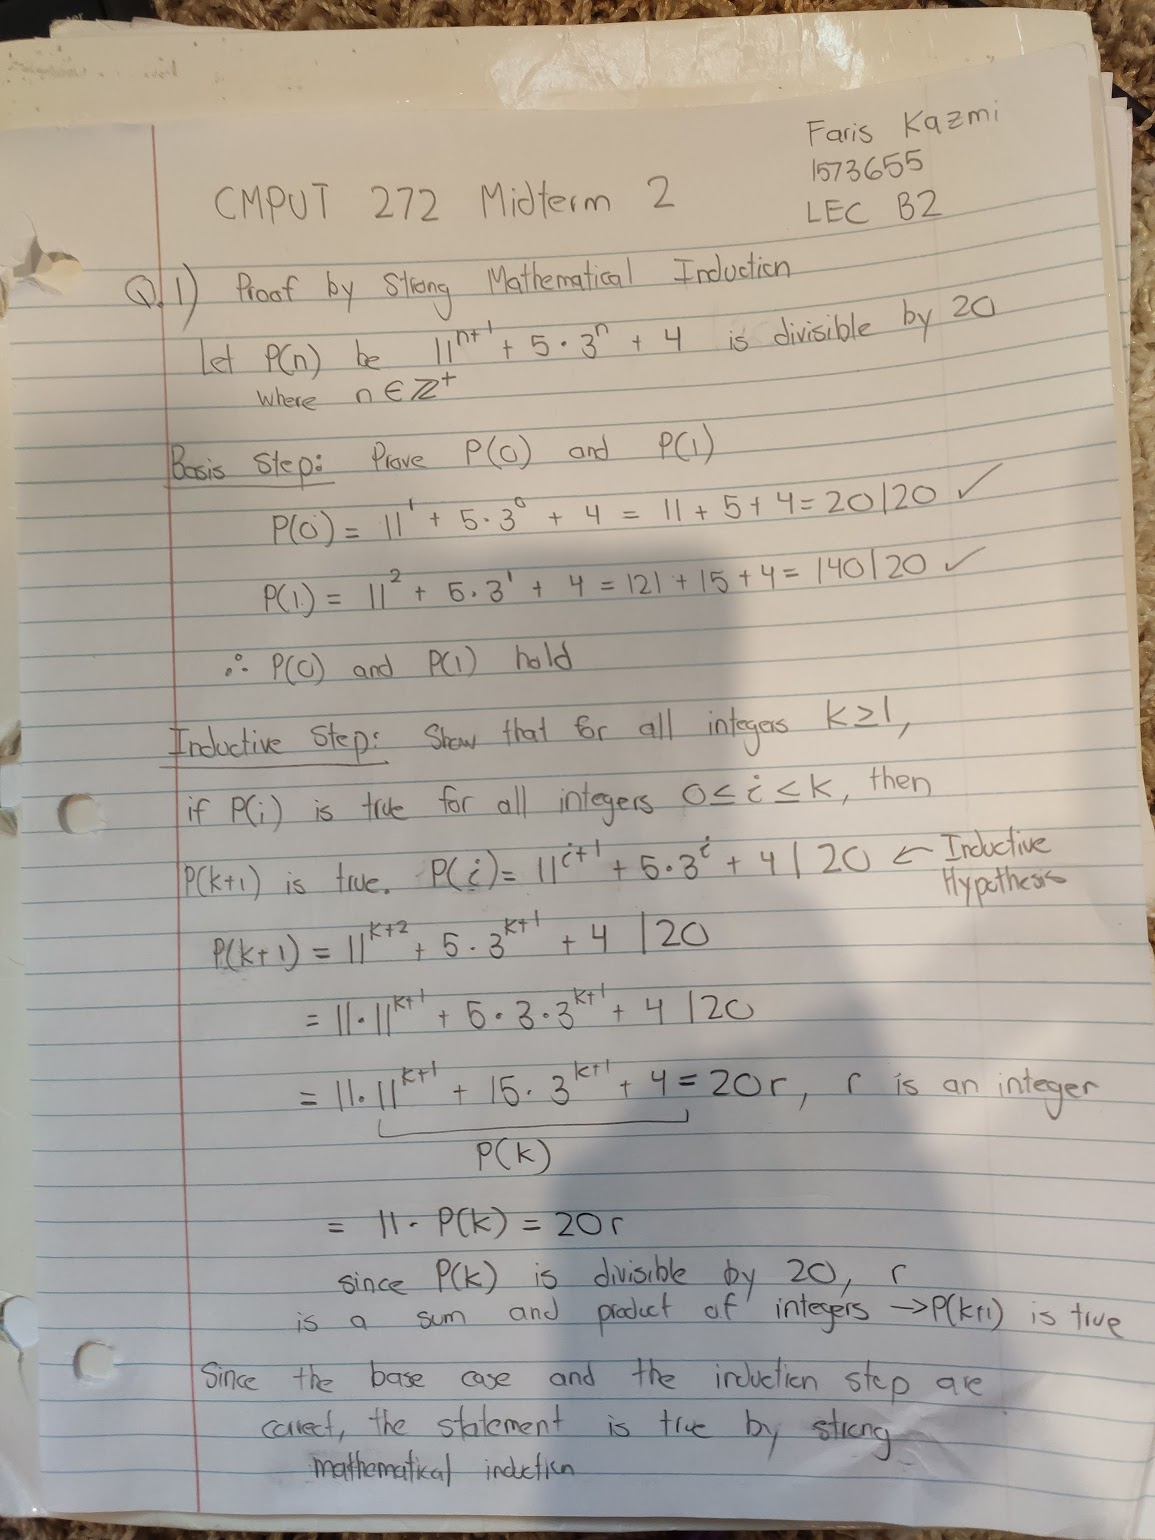 Faris Kazmi
1573655
LEC B2
CMPUT 272 Midterm 2
Q.1) Proof by Strong Mathematical Induction
Let P(n) be 11^{n+1} + 5 · 3^n + 4 is divisible by 20
where n ∈ Z^+
Basis Step: Prove P(0) and P(1)
P(0) = 11^1 + 5 · 3^0 + 4 = 11 + 5 + 4 = 20 | 20 ✓
P(1) = 11^2 + 5 · 3^1 + 4 = 121 + 15 + 4 = 140 | 20 ✓
∴ P(0) and P(1) hold
Inductive Step: Show that for all integers k ≥ 1,
if P(i) is true for all integers 0 ≤ i ≤ k, then
P(k+1) is true. P(i) = 11^{i+1} + 5 · 3^i + 4 | 20 ← Inductive
Hypothesis
P(k+1) = 11^{k+2} + 5 · 3^{k+1} + 4 | 20
= 11 · 11^{k+1} + 5 · 3 · 3^{k+1} + 4 | 20
= 11 · 11^{k+1} + 15 · 3^{k+1} + 4 = 20r, r is an integer
P(k)
= 11 · P(k) = 20r
since P(k) is divisible by 20, r
is a sum and product of integers → P(k+1) is true
Since the base case and the induction step are
correct, the statement is true by strong
mathematical induction